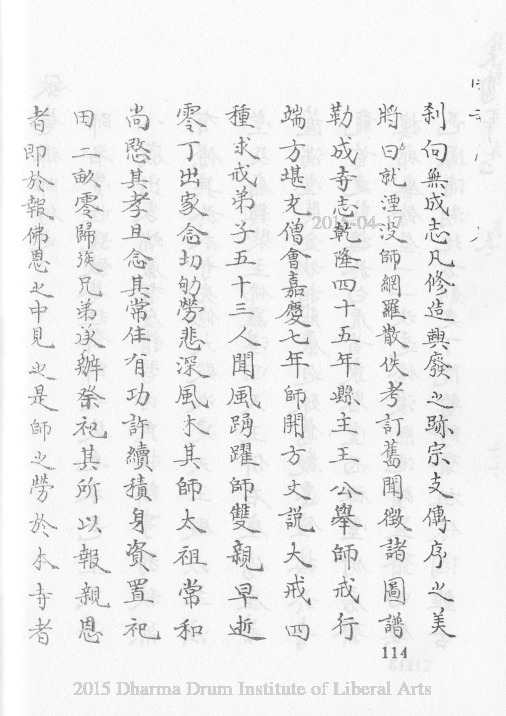 刹向無成志凡修造興廢之跡宗支傳序之美
將日就湮没師網羅散佚考訂舊聞徵諸圖譜
勒成寺志乾隆四十五年縣主王公舉師戒行
端方堪充僧會嘉慶七年師開方丈説大戒四
種求戒弟子五十三人聞風踴躍師雙親早逝
零丁出家念切劬勞悲深風木其師太祖常和
尚愍其孝且念其常住有功許續積身資置祀
田二畝零歸族兄弟承辦祭祀其所以報親恩
者即於報佛恩之中見之是師之勞於本寺者
114
2015-04-17
2015 Dharma Drum Institute of Liberal Arts